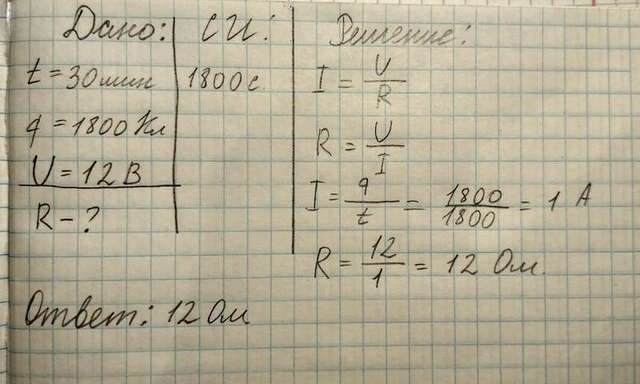 Дано:
t = 30 мин
q = 1800 Кл
U = 12 В
R - ?
СИ:
1800 с
Решение:
I = U/R
R = U/I
I = q/t = 1800/1800 = 1 А
R = 12/1 = 12 Ом.
Ответ: 12 Ом